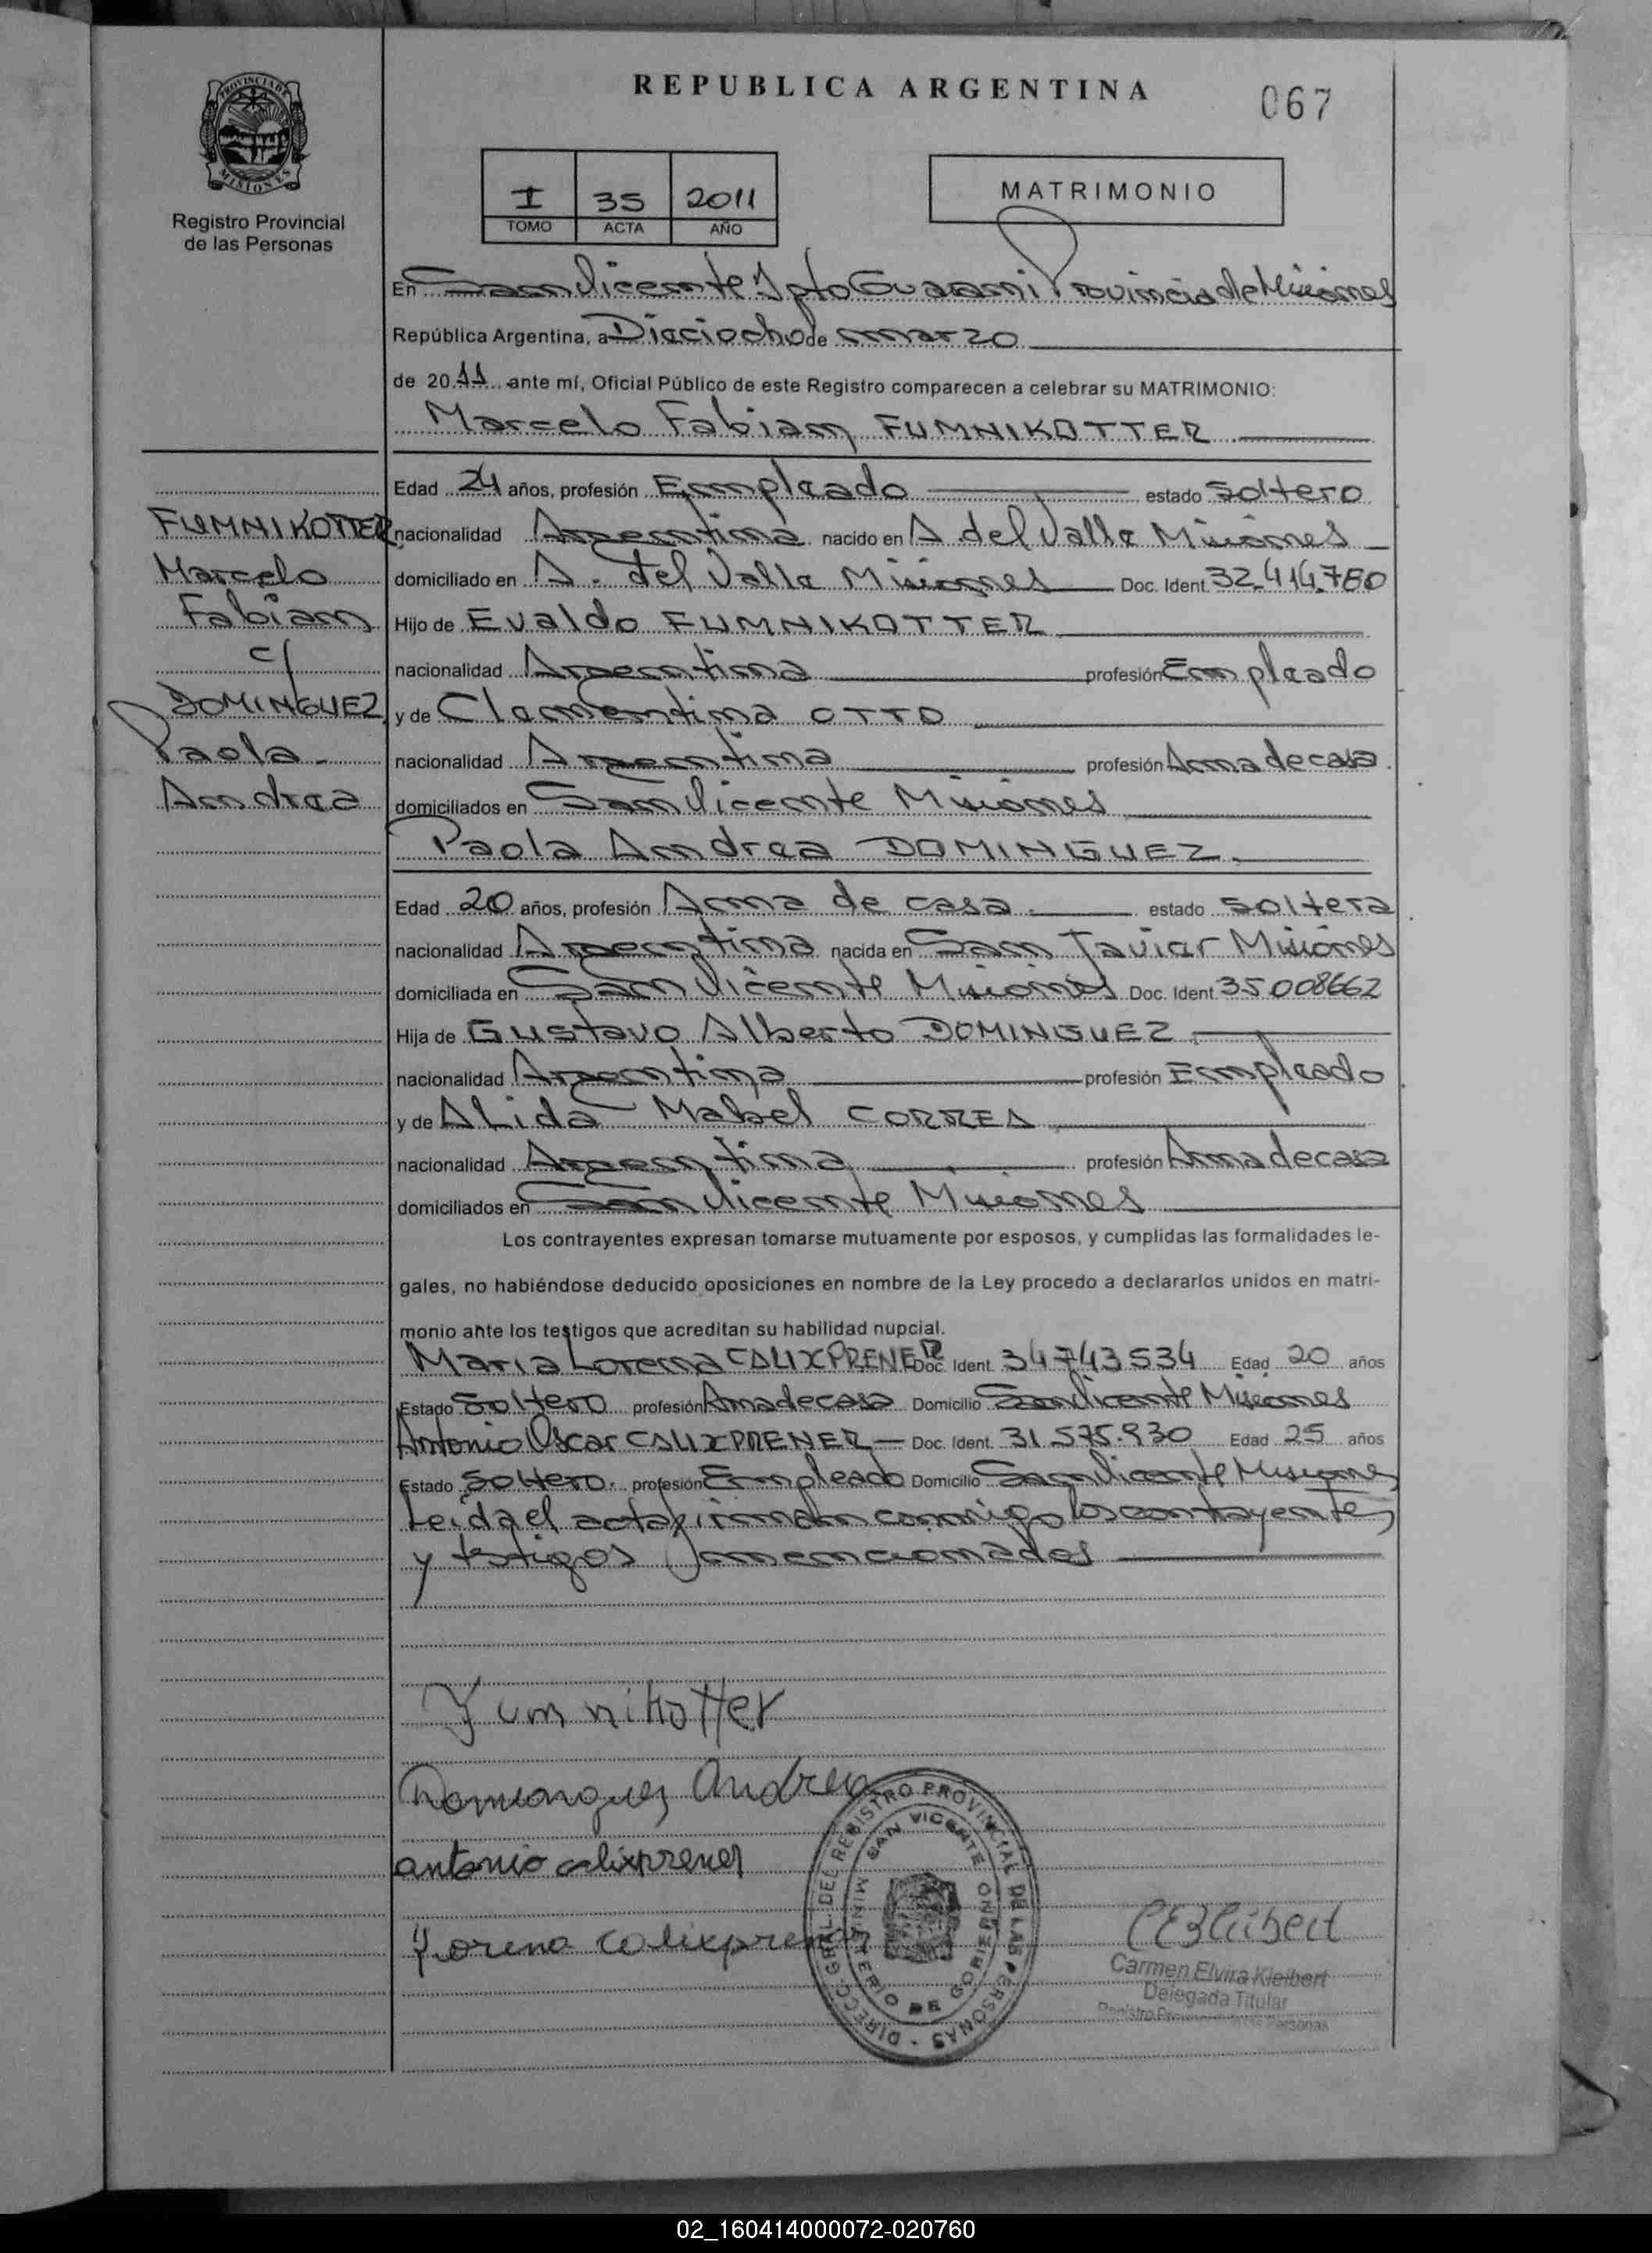 REPUBLICA ARGENTINA
067
PROVINCIA DE MISIONES
Registro Provincial
de las Personas
I 35 2011
TOMO ACTA AÑO
MATRIMONIO
En San Vicente Dpto Guarani Provincia de Misiones
República Argentina, a Dieciocho de marzo
de 2011 ante mí, Oficial Público de este Registro comparecen a celebrar su MATRIMONIO:
Marcelo Fabian FUMNIKOTTER
Edad 24 años, profesión Empleado estado soltero
nacionalidad Argentina nacido en A del Valle Misiones
domiciliado en A. del Valle Misiones Doc. Ident. 32.414.780
Hijo de Evaldo FUMNIKOTTER
nacionalidad Argentina profesión Empleado
y de Clementina OTTO
nacionalidad Argentina profesión Ama de casa
domiciliados en San Vicente Misiones
Paola Andrea DOMINGUEZ.
FUMNIKOTTER
Marcelo
Fabian
c/
DOMINGUEZ
Paola
Andrea
Edad 20 años, profesión Ama de casa. estado soltera
nacionalidad Argentina nacida en San Javier Misiones
domiciliada en San Vicente Misiones Doc. Ident. 35008662
Hija de Gustavo Alberto DOMINGUEZ
nacionalidad Argentina profesión Empleado
y de ALida Mabel CORREA
nacionalidad Argentina profesión Ama de casa
domiciliados en San Vicente Misiones
Los contrayentes expresan tomarse mutuamente por esposos, y cumplidas las formalidades le-
gales, no habiéndose deducido oposiciones en nombre de la Ley procedo a declararlos unidos en matri-
monio ante los testigos que acreditan su habilidad nupcial.
Maria Lorena CALIXPRENER Doc. Ident. 34743534 Edad 20 años
Estado Soltero profesión Ama de casa Domicilio San Vicente Misiones
Antonio Oscar CALIXPRENER Doc. Ident. 31.575.930 Edad 25 años
Estado Soltero. profesión Empleado Domicilio San Vicente Misiones
Leida el acta firman conmigo los contrayentes
y testigos mencionados
Fumnikotter
Dominguez Andrea
antonio calixprener
Lorena calixprener
DIRECC. GRAL. DEL REGISTRO PROVINCIAL DE LAS PERSONAS
SAN VICENTE
MINISTERIO DE GOBIERNO
Carmen Elvira Kleibert
Delegada Titular
Registro Provincial de las Personas
02_160414000072-020760